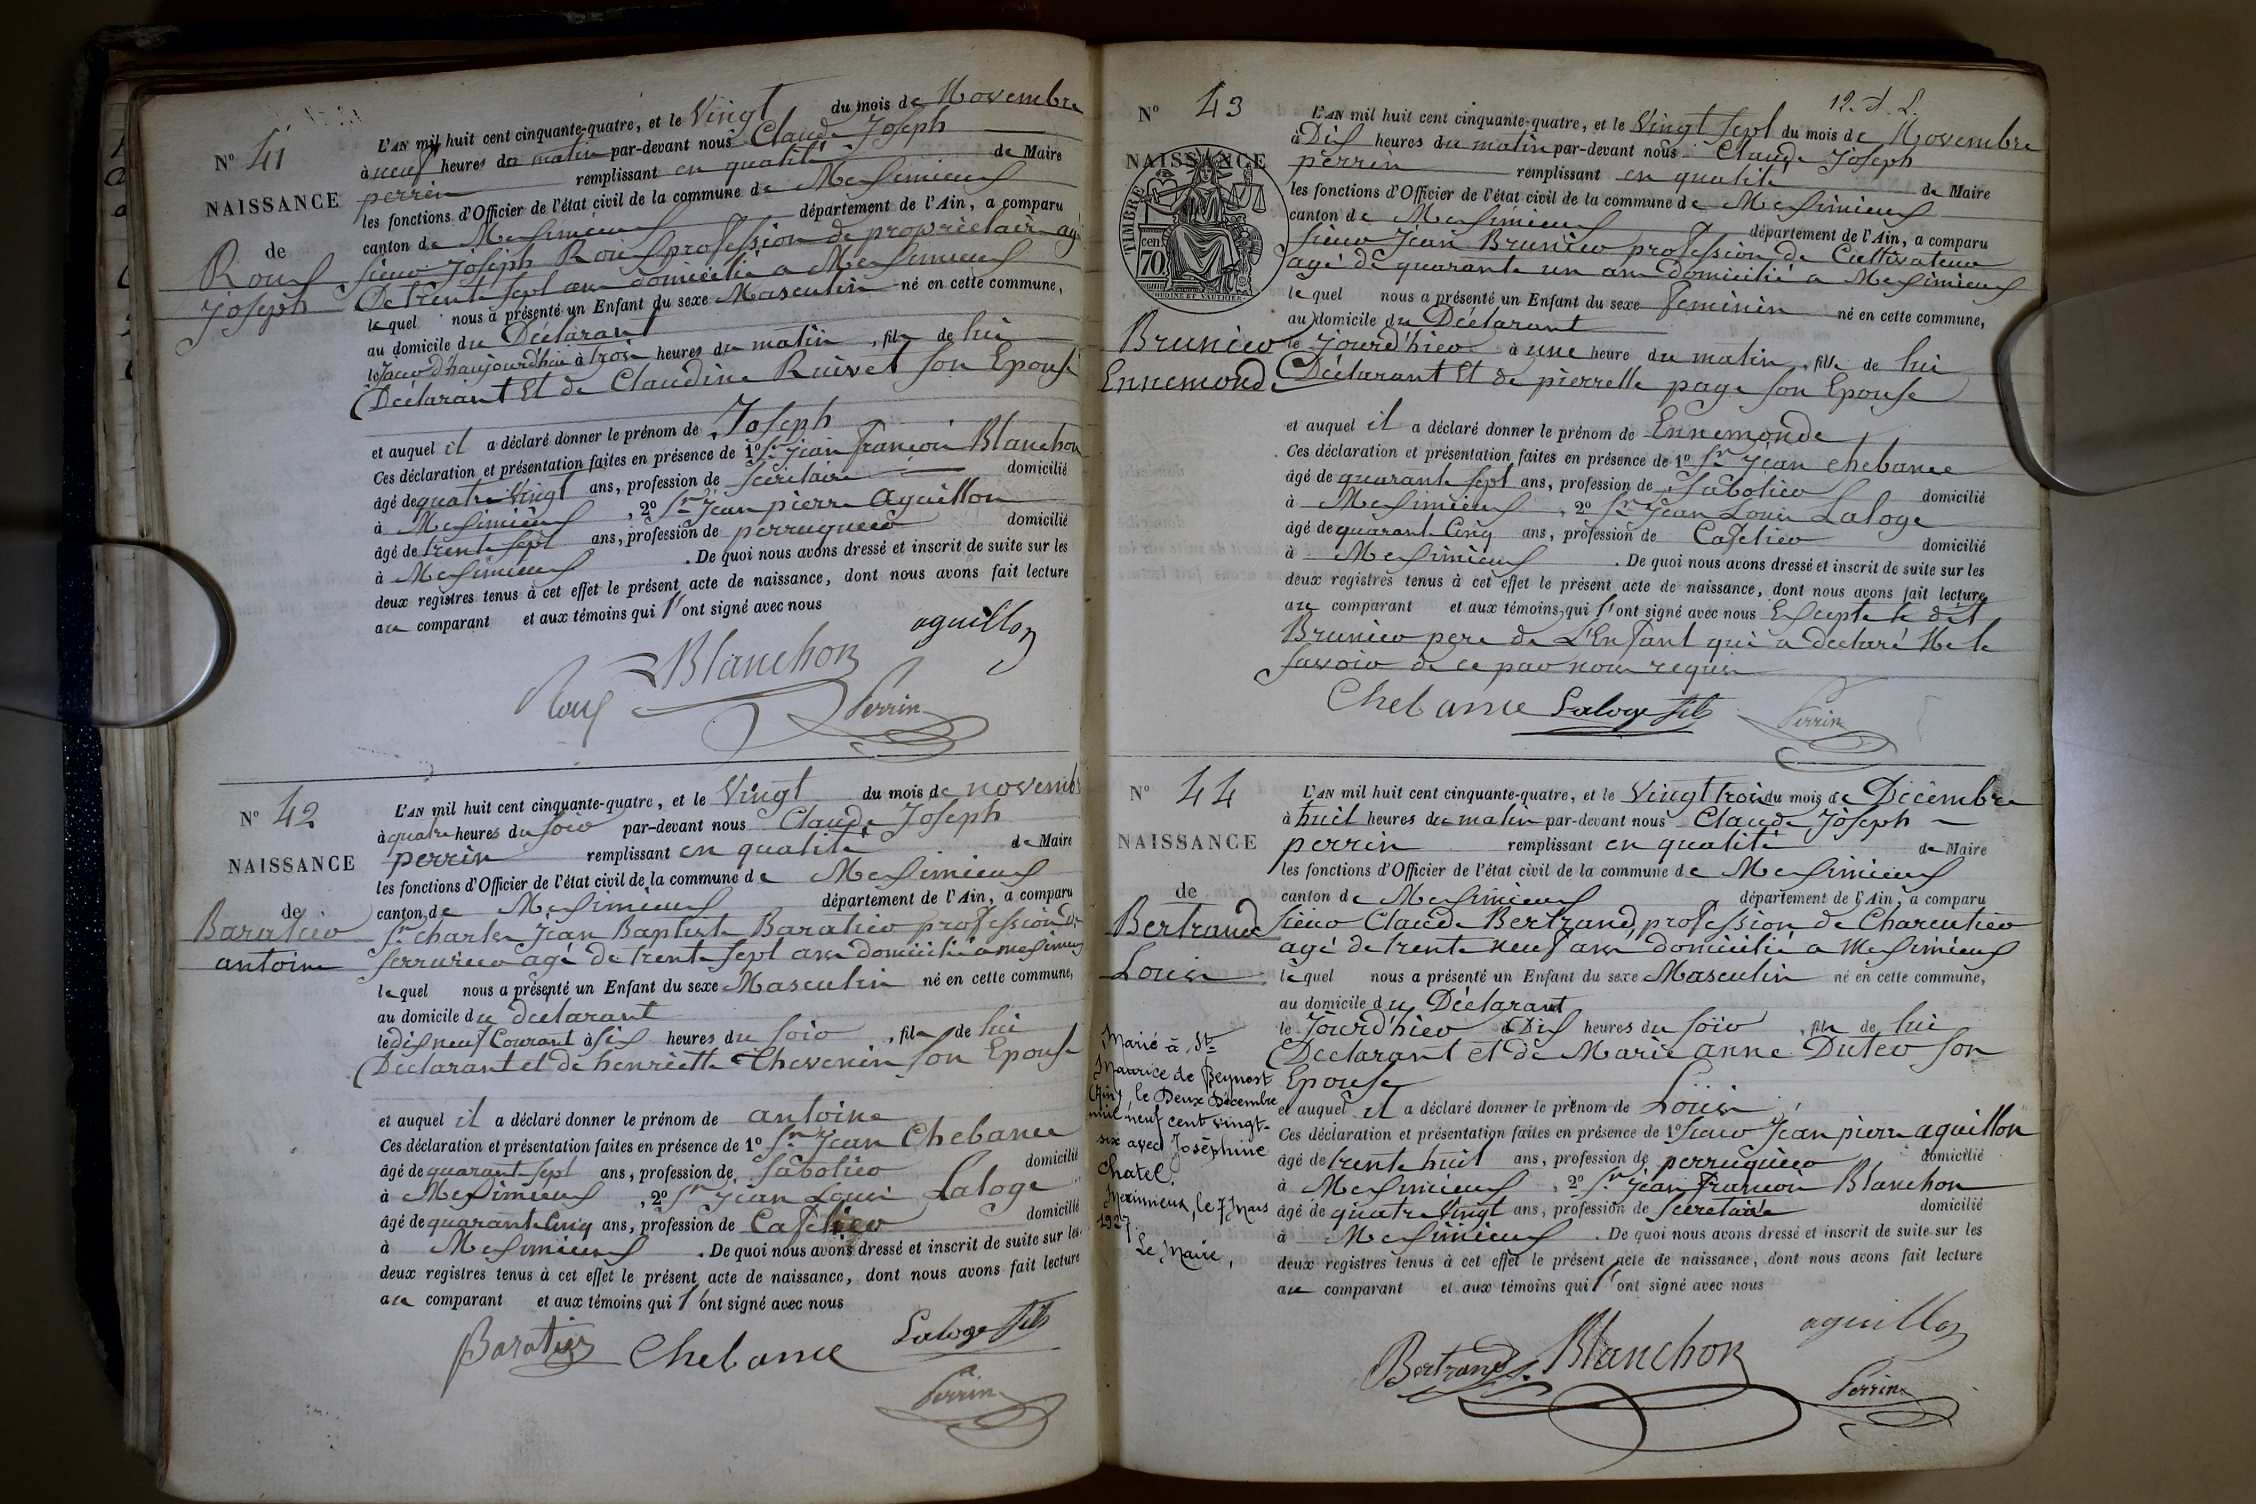 N° 41
NAISSANCE
de
Roux
Joseph
L'AN mil huit cent cinquante-quatre, et le Vingt du mois de Novembre
à neuf heures du matin par-devant nous Claude Joseph
perrin remplissant en qualité de Maire
les fonctions d'Officier de l'état civil de la commune de Meximieux
canton de Meximieux département de l'Ain, a comparu
sieur Joseph Roux profession de propriétaire agé
De trente sept ans domicilié a Meximieux
lequel nous a présenté un Enfant du sexe Masculin né en cette commune,
au domicile du Déclarant
le jour d'haujourd'hui à trois heures du matin, fils de lui
Déclarant Et de Claudine Ruivet son Epouse
et auquel il a déclaré donner le prénom de Joseph
Ces déclaration et présentation faites en présence de 1° Sr Jean françois Blanchon
âgé de quatre Vingt ans, profession de secrétaire domicilié
à Meximieux, 2° Sr Jean pierre aguillon
âgé de trente sept ans, profession de perruquier domicilié
à Meximieux. De quoi nous avons dressé et inscrit de suite sur les
deux registres tenus à cet effet le présent acte de naissance, dont nous avons fait lecture
au comparant et aux témoins qui l'ont signé avec nous
aguillon
Roux Blanchon
Perrin
N° 42
NAISSANCE
de
Baratier
antoine
L'AN mil huit cent cinquante-quatre, et le Vingt du mois de novembre
à quatre heures du soir par-devant nous Claude Joseph
perrin remplissant en qualité de Maire
les fonctions d'Officier de l'état civil de la commune de Meximieux
canton de Meximieux département de l'Ain, a comparu
Sr charles Jean Baptiste Baratier profession de
serrurier agé de trente sept ans domicilié a meximieux
lequel nous a présenté un Enfant du sexe Masculin né en cette commune,
au domicile du declarant
le dix neuf Courant à six heures du soir, fils de lui
Déclarant et de henriette Thevenin son Epouse
et auquel il a déclaré donner le prénom de antoine
Ces déclaration et présentation faites en présence de 1° Sr Jean Chebance
âgé de quarante sept ans, profession de sabotier domicilié
à Meximieux, 2° Sr Jean Louis Laloge
âgé de quarante Cinq ans, profession de Cafetier domicilié
à Meximieux. De quoi nous avons dressé et inscrit de suite sur les
deux registres tenus à cet effet le présent acte de naissance, dont nous avons fait lecture
au comparant et aux témoins qui l'ont signé avec nous
Baratier Chebance Laloge fils
Perrin
N° 43
NAISSANCE
TIMBRE
cen
70
OUDINÉ ET VAUTHIER
Brunier
Ennemonde
L'AN mil huit cent cinquante-quatre, et le Vingt sept du mois de Novembre
à Dix heures du matin par-devant nous Claude Joseph
perrin remplissant en qualité de Maire
les fonctions d'Officier de l'état civil de la commune de Meximieux
canton de Meximieux département de l'Ain, a comparu
sieur Jean Brunier profession de Cultivateur
agé de quarante un ans domicilié a Meximieux
lequel nous a présenté un Enfant du sexe feminin né en cette commune,
au domicile du Déclarant
le jourd'hier à une heure du matin, fille de lui
Déclarant Et de pierrette page son Epouse
et auquel il a déclaré donner le prénom de Ennemonde
Ces déclaration et présentation faites en présence de 1° Sr Jean chebance
âgé de quarante sept ans, profession de sabotier domicilié
à Meximieux, 2° Sr Jean Louis Laloge
âgé de quarante Cinq ans, profession de Cafetier domicilié
à Meximieux. De quoi nous avons dressé et inscrit de suite sur les
deux registres tenus à cet effet le présent acte de naissance, dont nous avons fait lecture
au comparant et aux témoins, qui l'ont signé avec nous Excepté le dit
Brunier pere de L'Enfant qui a declaré Ne le
savoir de ce par nous requis
Chebance Laloge fils Perrin
N° 44
NAISSANCE
de
Bertrand
Louis
Marié à St
Maurice de Beynost
(Ain) le Deux Décembre
mil neuf cent vingt-
six avec Joséphine
Chatel.
Meximieux, le 7 Mars
1927.
Le Maire,
L'AN mil huit cent cinquante-quatre, et le Vingt trois du mois de Décembre
à huit heures du matin par-devant nous Claude Joseph
perrin remplissant en qualité de Maire
les fonctions d'Officier de l'état civil de la commune de Meximieux
canton de Meximieux département de l'Ain, a comparu
sieur Claude Bertrand, profession de Charcutier
agé de trente neuf ans domicilié a Meximieux
lequel nous a présenté un Enfant du sexe Masculin né en cette commune,
au domicile du Déclarant
le Jourd'hier à Dix heures du soir, fils de lui
Déclarant et de Marie anne Duter son
Epouse
et auquel il a déclaré donner le prénom de Louis
Ces déclaration et présentation faites en présence de 1° sieur Jean pierre aguillon
âgé de trente huit ans, profession de perruquier domicilié
à Meximieux, 2° Sr Jean françois Blanchon
âgé de quatre Vingt ans, profession de secretaire domicilié
à Meximieux. De quoi nous avons dressé et inscrit de suite sur les
deux registres tenus à cet effet le présent acte de naissance, dont nous avons fait lecture
au comparant et aux témoins qui l'ont signé avec nous
aguillon
Bertrand Blanchon
Perrin